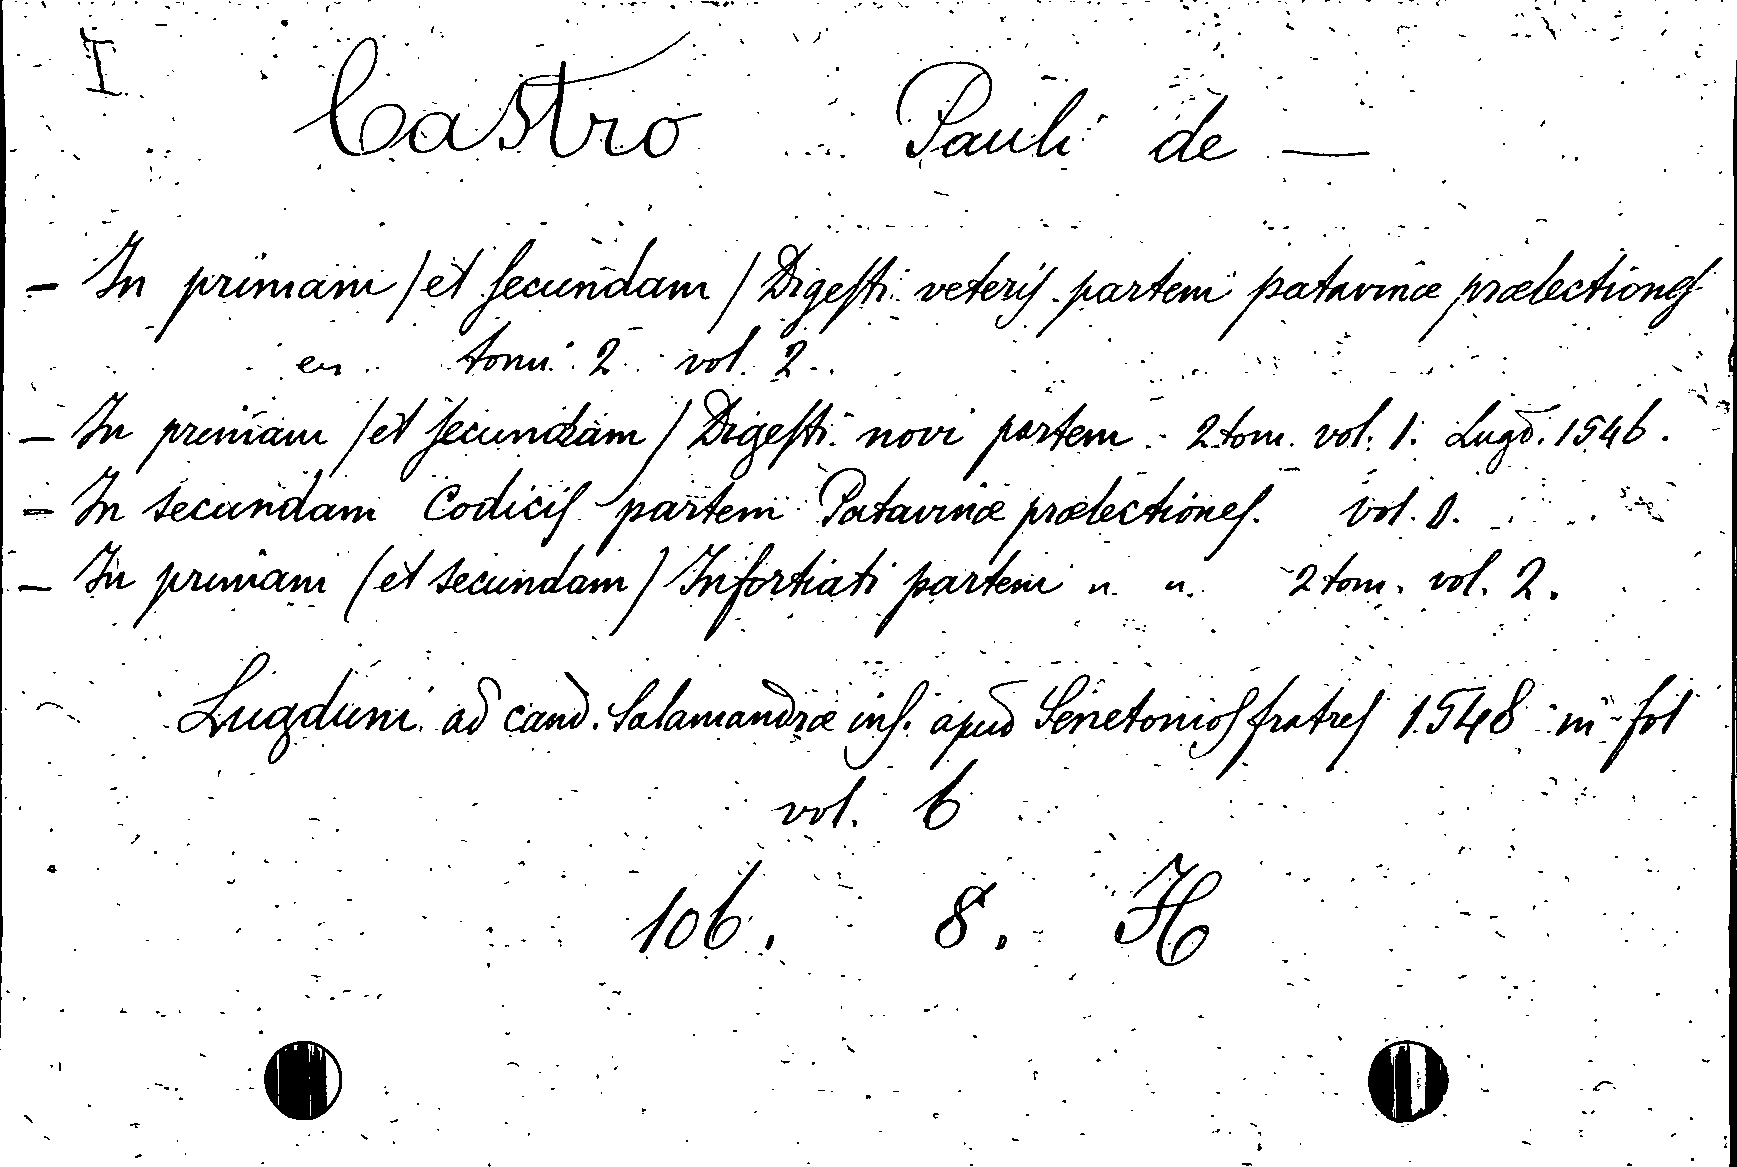 I
Castro Pauli de —
- In primam / et secundam / Digesti veteris partem patavinæ prælectiones
en tomi 2 vol. 2.
- In primam / et secundam / Digesti novi partem 2 tom. vol. 1. Lugd. 1546.
- In secundam Codicis partem Patavinæ prælectiones. vol. 1.
- In primam (et secundam) Infortiati partem " " 2 tom. vol. 2.
Lugduni ad cand. Salamandræ ins. apud Senetonios fratres 1548 in fol
vol. 6
106. 8. H